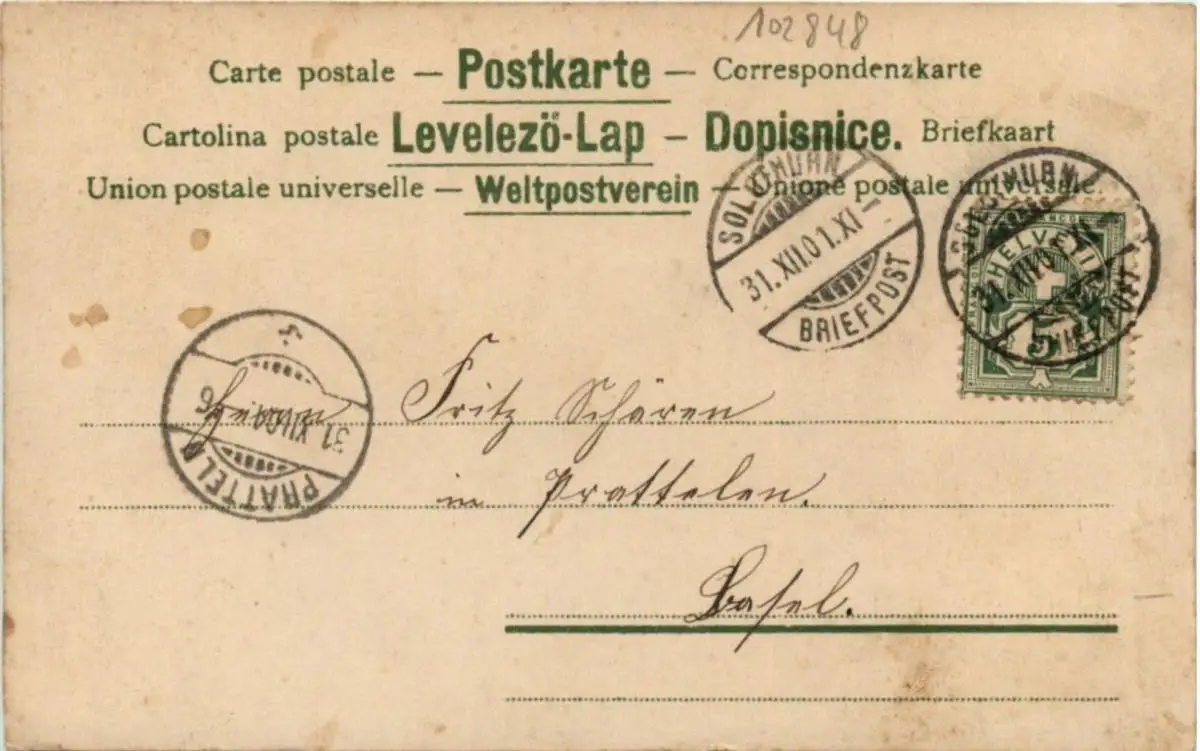 102848
Carte postale — Postkarte — Correspondenzkarte
Cartolina postale Levelező-Lap — Dopisnice. Briefkaart
Union postale universelle — Weltpostverein — Unione postale universale.
SOLOTHURN
31. XII. 01. XI —
BRIEFPOST
SOLOTHURN
31. XII. 01. XI —
BRIEFPOST
FRANCO
HELVETIA
5
PRATTELN
31 XII 01 6
Herrn Fritz Schären
in Prattelen.
Basel.